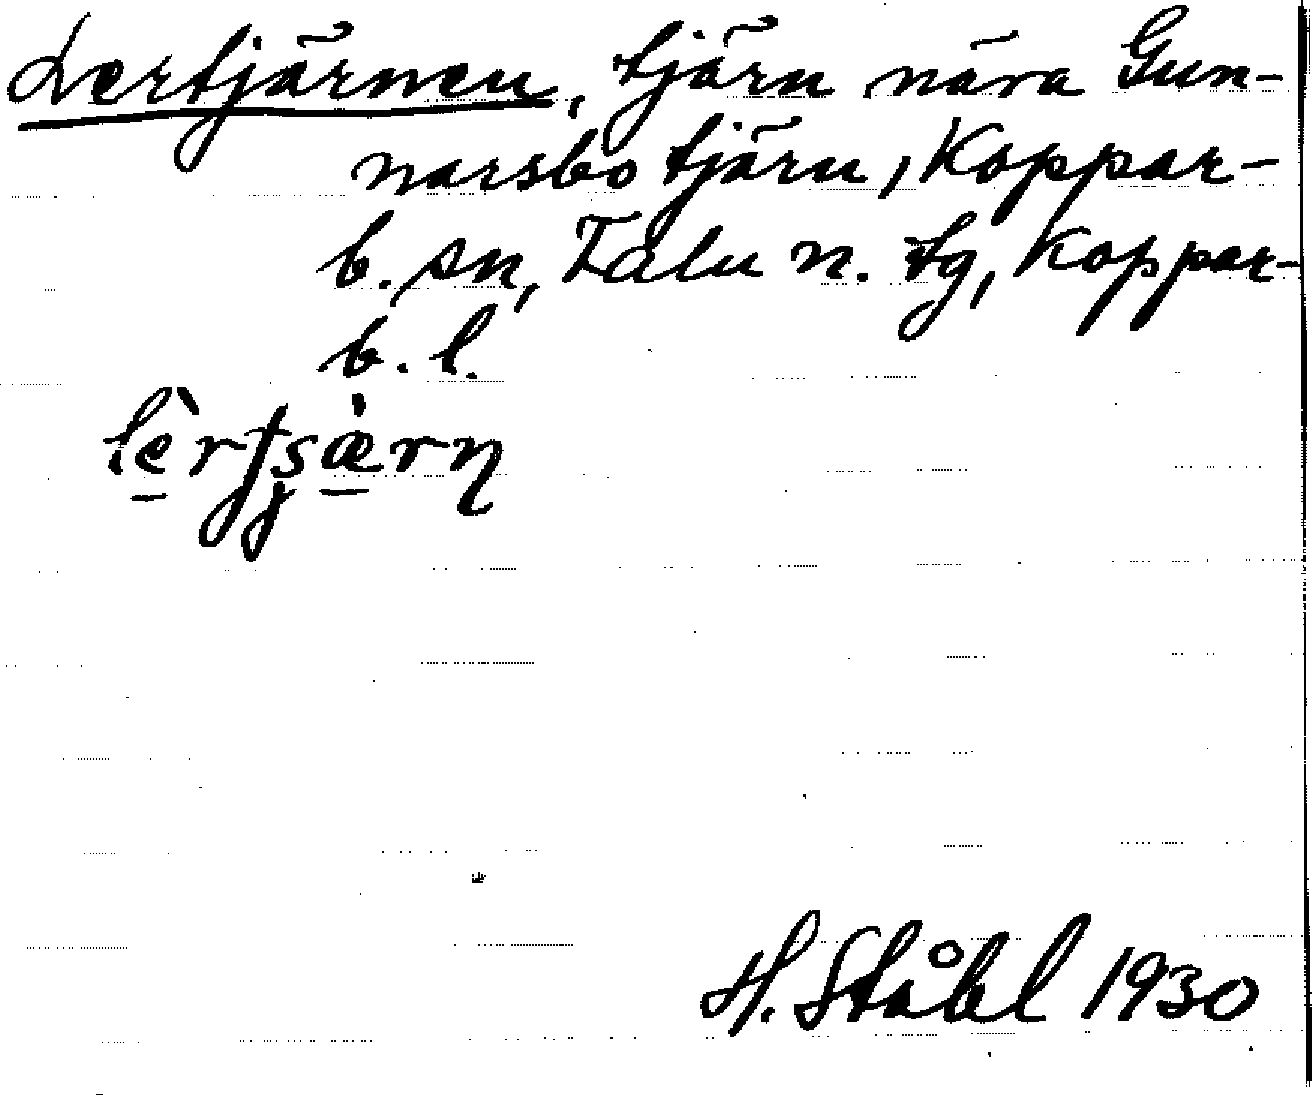 Lertjärnen, tjärn nära Gun-
narsbo tjärn, Koppar-
b. sn, Falu n. tg, Koppar-
b. l.
H. Ståhl 1930